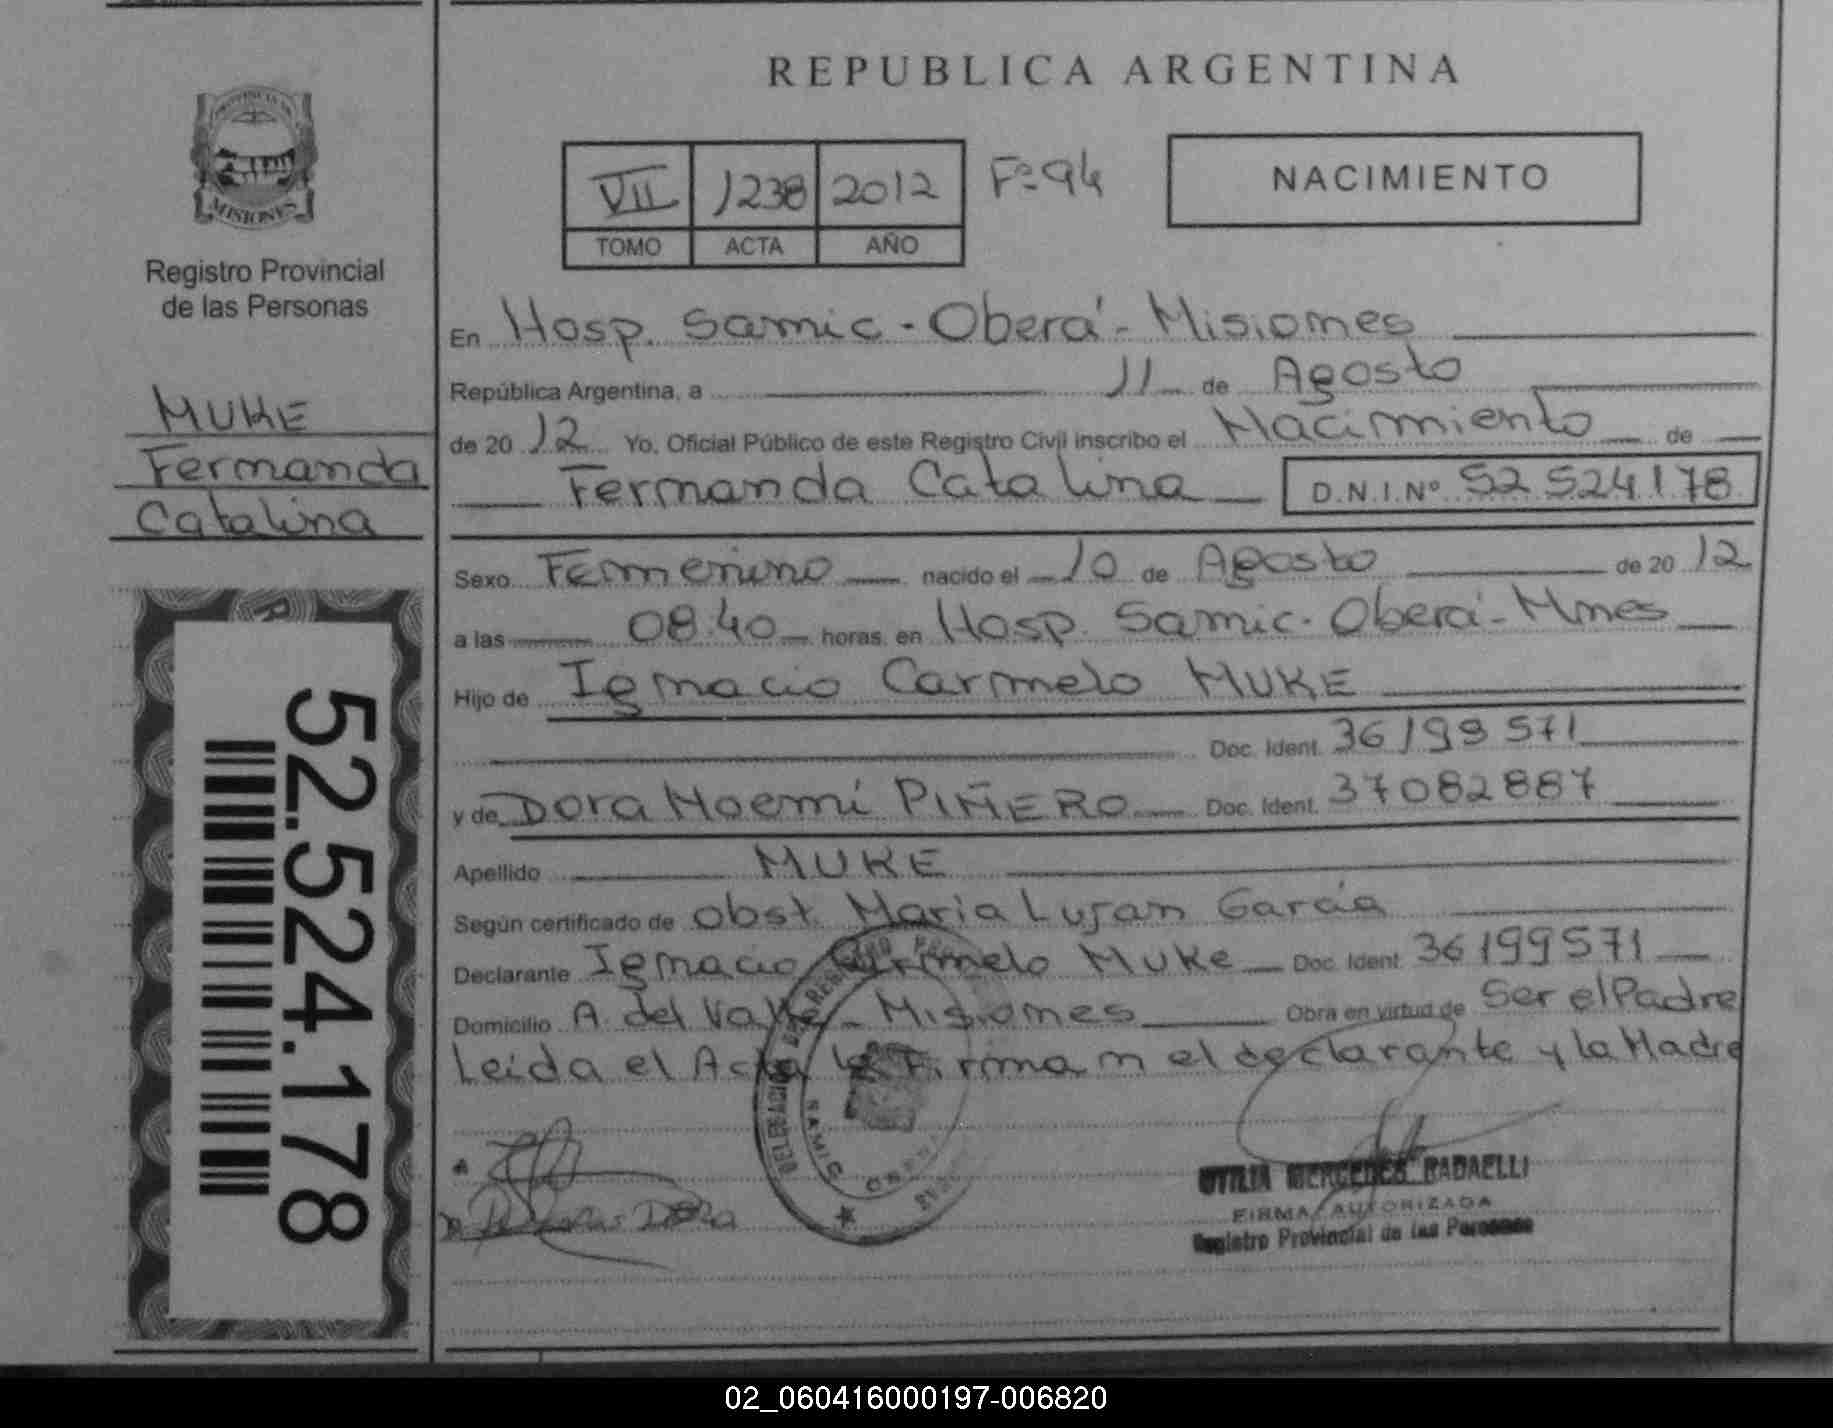 PROVINCIA DE
MISIONES
Registro Provincial
de las Personas
MUKE
Fernanda
Catalina
52.524.178
REPUBLICA ARGENTINA
VII 1238 2012 Fº 94
TOMO ACTA AÑO
NACIMIENTO
En Hosp. Samic - Oberá - Misiones
República Argentina, a 11 de Agosto
de 20 12 Yo, Oficial Público de este Registro Civil inscribo el Nacimiento de
Fernanda Catalina D.N.I.Nº 52 524 178
Sexo Femenino nacido el 10 de Agosto de 20 12
a las 08:40 horas, en Hosp. Samic - Oberá - Mnes
Hijo de Ignacio Carmelo MUKE
Doc. Ident. 36199571
y de Dora Noemí PIÑERO Doc. Ident. 37082887
Apellido MUKE
Según certificado de Obst. Maria Lujan Garcia
Declarante Ignacio Carmelo Muke Doc. Ident. 36199571
Domicilio A. del Valle - Misiones Obra en virtud de Ser el Padre
Leída el Acta la Firman el declarante y la Madre
SAMIC
OBERA
Dora
MERCEDES RADAELLI
FIRMA AUTORIZADA
Registro Provincial de las Personas
02_060416000197-006820